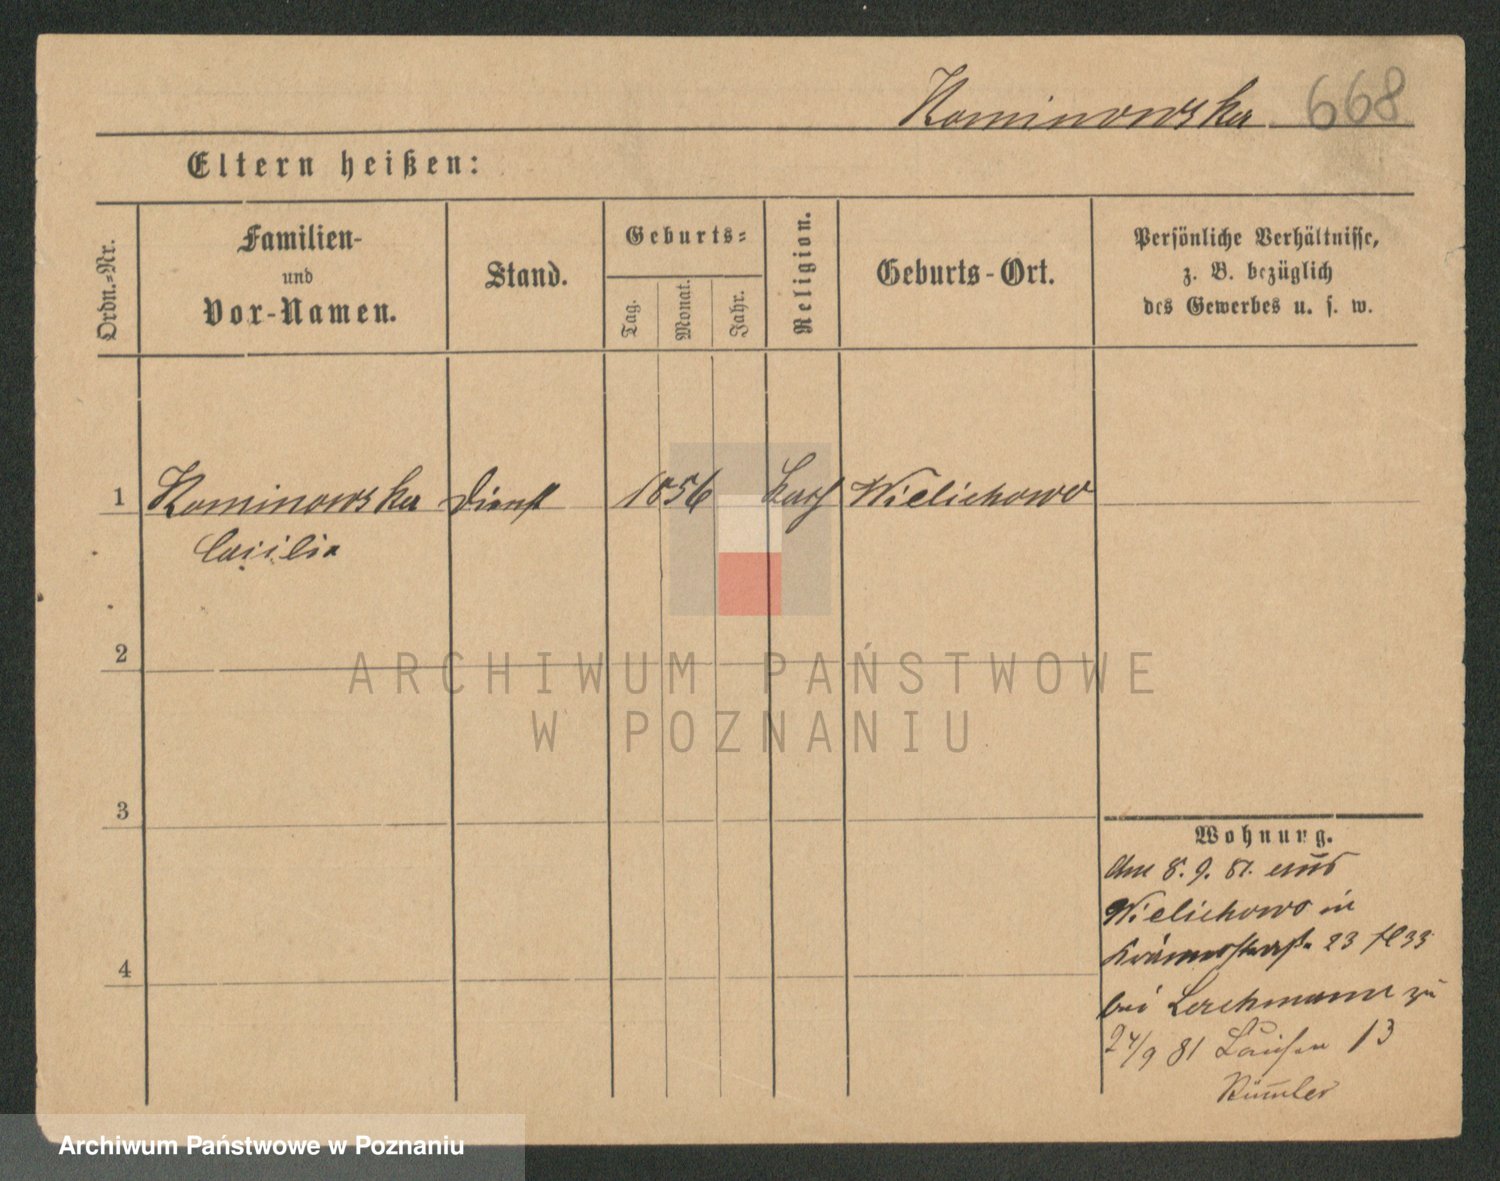 Kominowska 668
Eltern heißen:
Ordn.-Nr.
Familien-
und
Vor-Namen.
Stand.
Geburts-
Tag.
Monat.
Jahr.
Religion.
Geburts-Ort.
Persönliche Verhältnisse,
z. B. bezüglich
des Gewerbes u. s. w.
1 Kominowska Dienst 1856 Wielichowo
2
ARCHIWUM PAŃSTWOWE
W POZNANIU
3
Wohnung.
8. 9. 81. aus
Wielichowo in
Krämerstraße 23
4
bei zu
24/9 81 13
Archiwum Państwowe w Poznaniu